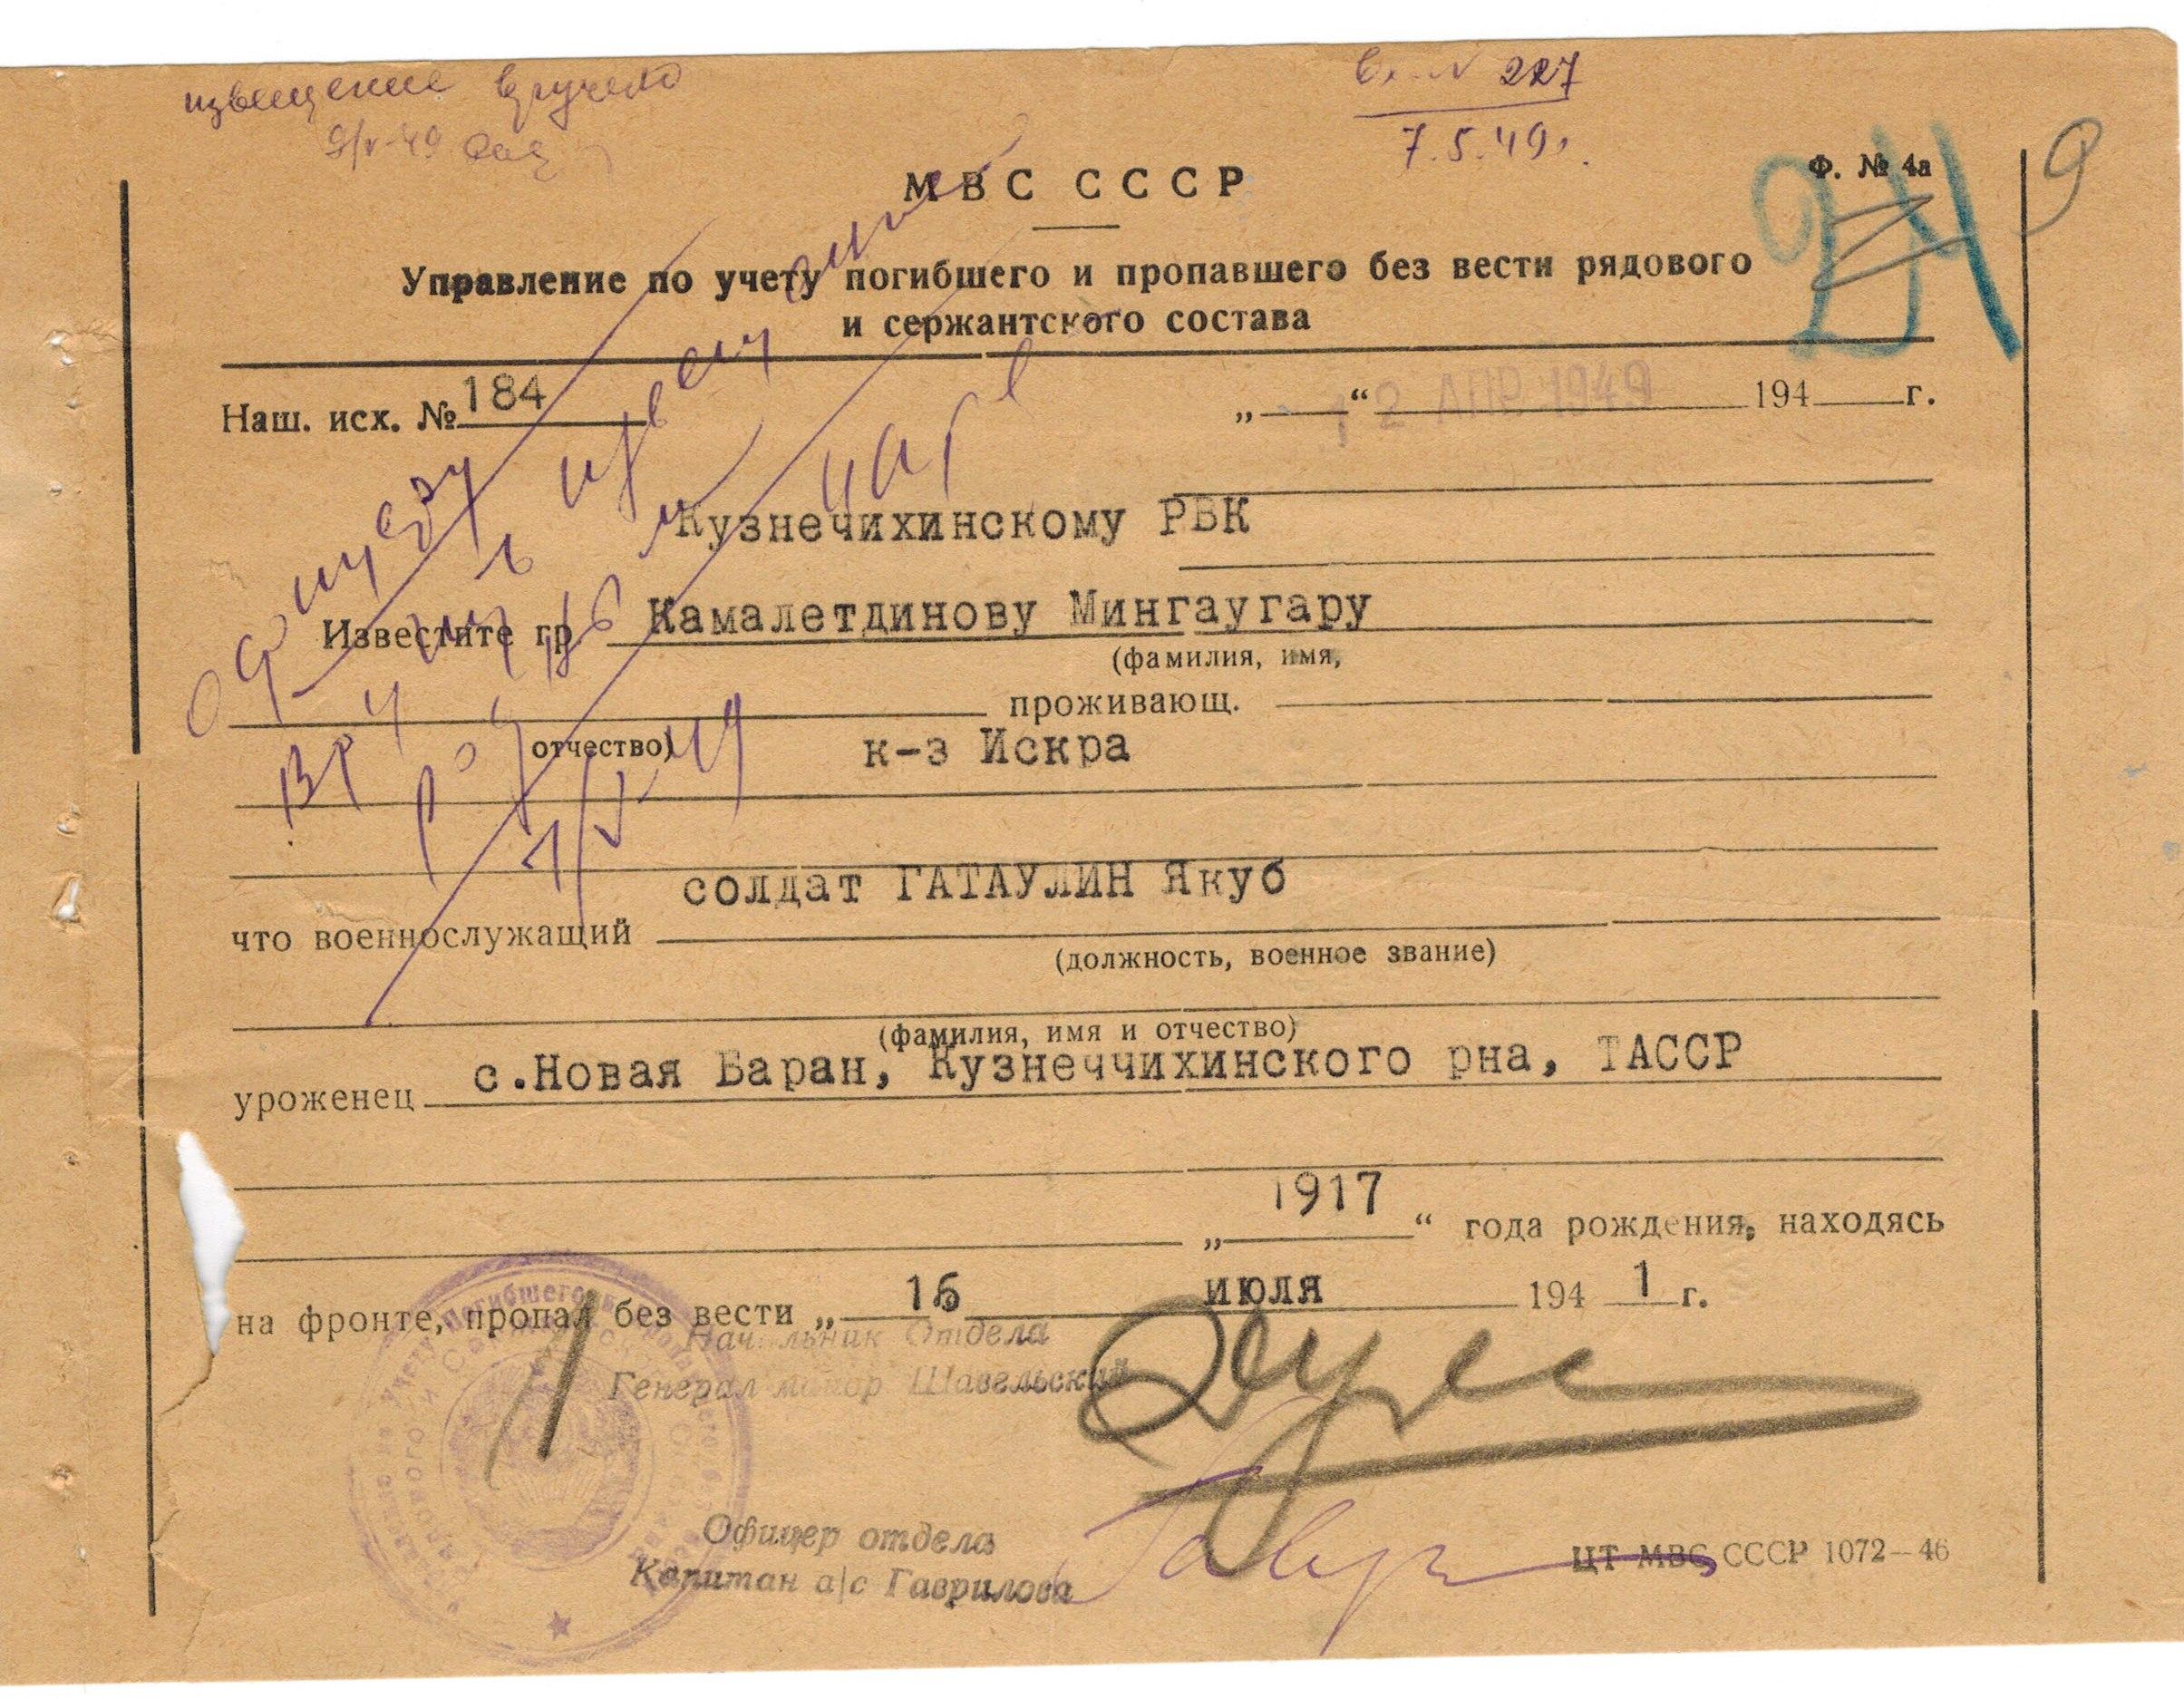 извещение вручено
Вх. N 227
7.5.49г.
9
24
МВС СССР
Ф. № 4а
Управление по учету погибшего и пропавшего без вести рядового
и сержантского состава
Наш. исх. № 184
„ “ 12 АПР 1949 194 г.
Кузнечихинскому РВК
Известите гр Камалетдинову Мингаугару
(фамилия, имя,
проживающ.
отчество)
к-з Искра
солдат ГАТАУЛИН Якуб
что военнослужащий
(должность, военное звание)
(фамилия, имя и отчество)
уроженец с.Новая Баран, Кузнеччихинского рна, ТАССР
„ 1917 “ года рождения, находясь
на фронте, пропал без вести „ 16 июля 194 1 г.
Начальник Отдела
Генерал майор Шавельский
Офицер отдела
Капитан а/с Гаврилова
ЦТ МВС СССР 1072—46